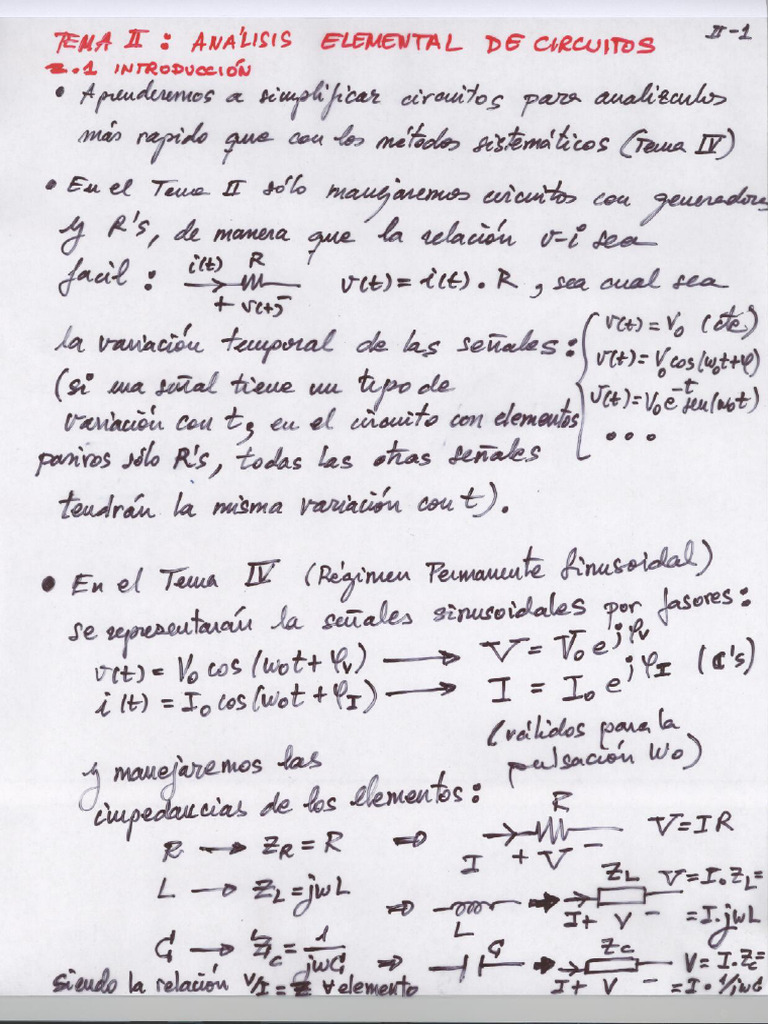 II-1
TEMA II: ANÁLISIS ELEMENTAL DE CIRCUITOS
2.1 INTRODUCCIÓN
• Aprenderemos a simplificar circuitos para analizarlos
más rapido que con los métodos sistemáticos (Tema IV)
• En el Tema II sólo manejaremos circuitos con generadores
y R's, de manera que la relación v-i sea
facil: i(t) R + v(t) - v(t) = i(t) . R, sea cual sea
la variación temporal de las señales: { v(t) = V₀ (cte)
v(t) = V₀ cos(w₀t+φ)
(si una señal tiene un tipo de
v(t) = V₀ e^-t sen(w₀t)
variación con t, en el circuito con elementos
• • •
pasivos sólo R's, todas las otras señales
tendrán la misma variación con t).
• En el Tema IV (Régimen Permanente Sinusoidal)
se representarán la señales sinusoidales por fasores:
v(t) = V₀ cos (w₀t + φv) → V = V₀ e^jφv
i(t) = I₀ cos(w₀t + φI) → I = I₀ e^jφI (ℂ's)
(válidos para la
pulsación w₀)
y manejaremos las
impedancias de los elementos:
R → Z_R = R ⇒ R I + V - V = IR
L → Z_L = jwL ⇒ L → Z_L I + V - V = I.Z_L = = I.jwL
C → Z_c = 1/jwC ⇒ C → Z_c I + V - V = I.Z_c = = I.1/jwC
siendo la relación V/I = Z ∀ elemento